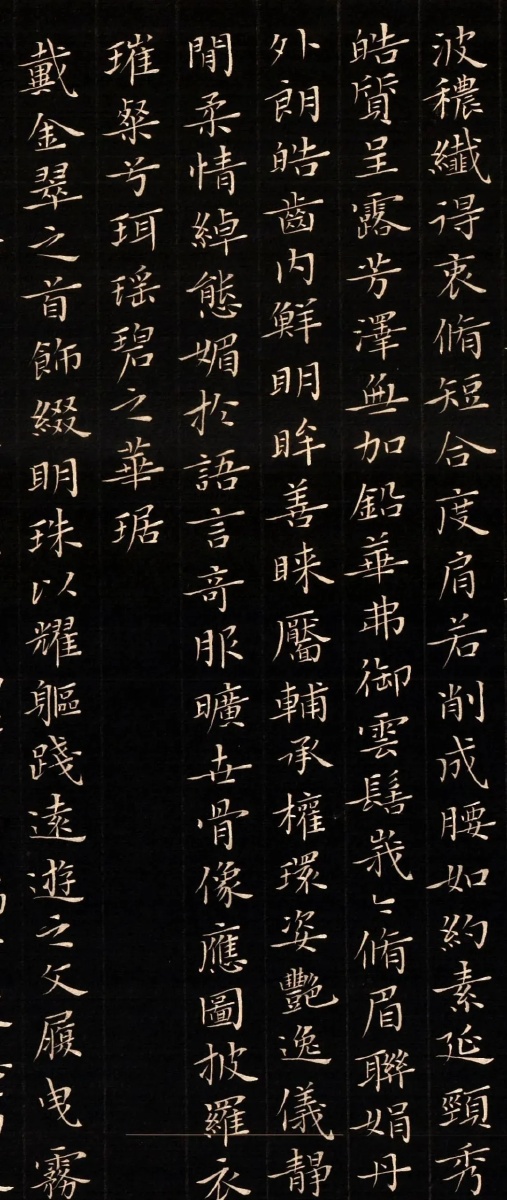 波穠纖得衷脩短合度肩若削成腰如約素延頸秀
皓質呈露芳澤無加鉛華弗御雲髻峩〻脩眉聯娟丹
外朗皓齒內鮮明眸善睞靨輔承權瓌姿艷逸儀靜
閒柔情綽態媚於語言奇服曠世骨像應圖披羅衣
璀粲兮珥瑶碧之華琚
戴金翠之首飾綴明珠以耀軀踐遠遊之文履曳霧